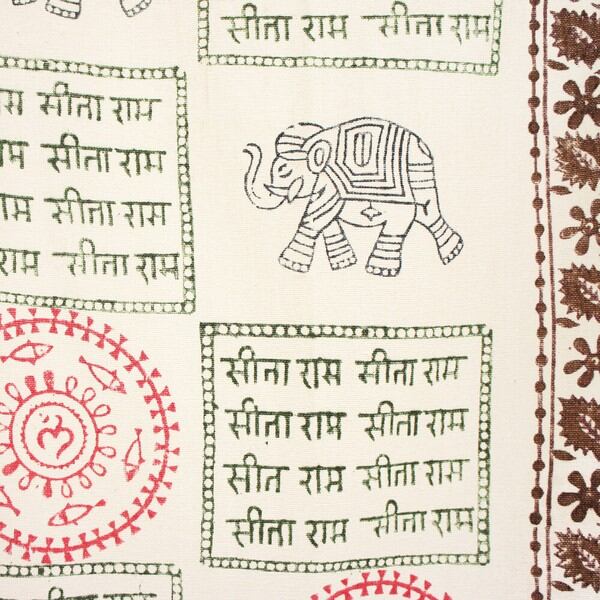 सीता राम सीता राम
राम सीता राम
राम सीता राम
राम सीता राम
राम सीता राम
ॐ
सीता राम सीता राम
सीता राम सीता राम
सीत राम सीता राम
सीता राम सीता राम